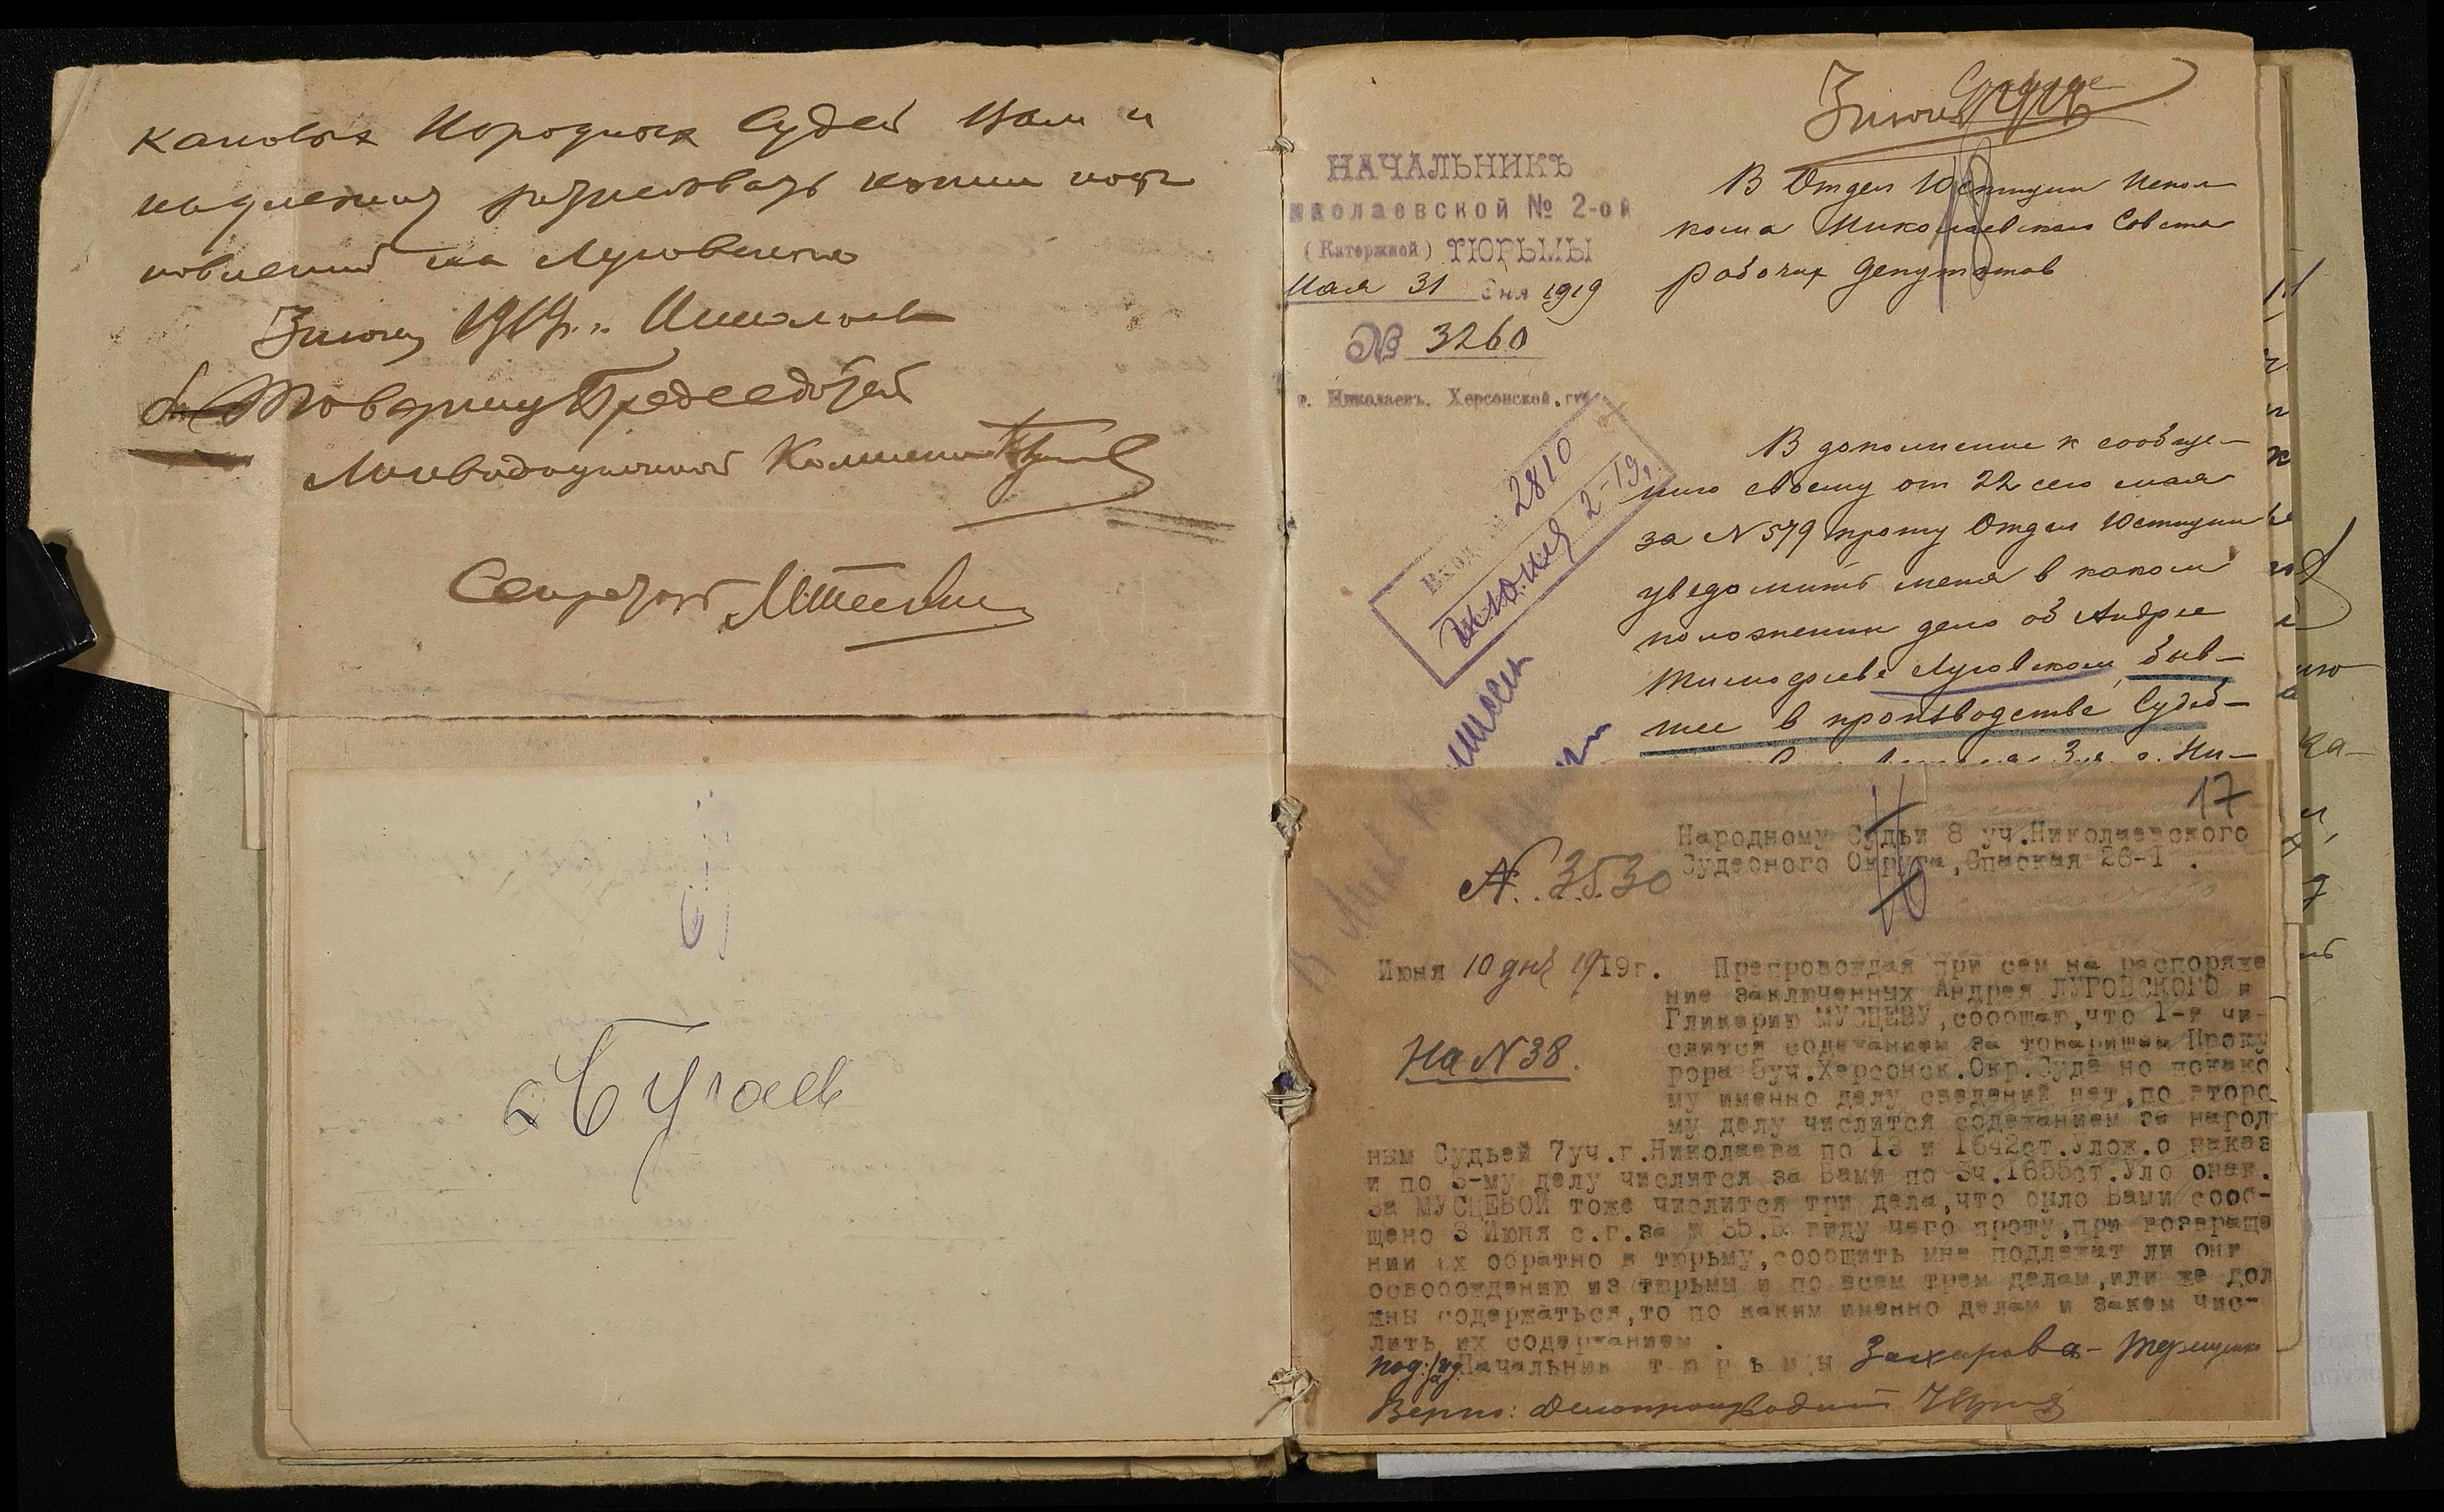 каковых Народных Судей Вам и
надлежит копии пост
новлений на Луговского
3 июня 1919 г. Николаев
Товарищ Председателя
Ликвидационной Комиссии
Секретарь
Бугаев
3 июня 1919
НАЧАЛЬНИКЪ
николаевской № 2-ой
(Каторжной) ТЮРЬМЫ
Мая 31 дня 1919
№ 3260
г. Николаевъ. Херсонской. губ.
Вход. № 2810
июня 2-19
В Отдел Юстиции Испол-
кома Николаевскаго Совета
рабочих депутатов
18
В дополнение к сообще-
нию своему от 22 сего мая
за N 579 прошу Отдел Юстиции
уведомить меня в каком
положении дело об Андрее
Тимофееве Луговском, быв-
шее в производстве Судеб-
17
Народному Судьи 8 уч.Николаевского
Судебного Округа,Спаская 26-1 .
16
N. 3530
Июня 10 дня 1919г.
На N 38.
Препровождая при сем на распоряже
ние заключенных Андрея ЛУГОВСКОГО и
Гликерию МУСЦЕВУ,сообщаю,что 1-й чи-
слится содежанием за товарищем Проку
рора 5уч.Херсонск.Окр.Суда но покако
му именно делу сведений нет,по второ
му делу числится содежанием за народ
ным Судьей 7уч.г.Николаева по 13 и 1642ст.Улож.о наказ
и по 3-му делу числится за Вами по 3ч.1655ст.Уло онак.
За МУСЦЕВОЙ тоже числится три дела,что было Вами сооб-
щено 3 Июня с.г.за № 35.В виду чего прошу,при возвраще
нии их обратно в тюрьму,сообщить мне подлежат ли они
освобождению из тюрьмы и по всем трем делам,или же дол
жны содержаться,то по каким именно делам и закем чис-
лить их содержанием .
Начальник т ю р ь м ы Захарова-Терещенко
Верно: Делопроизводит